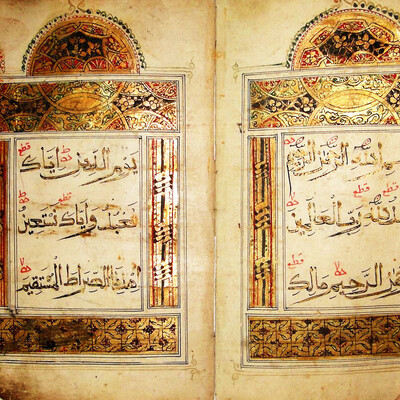 الله الرحمن الرحيم
لله رب العالمين
الرحيم مالك
يوم الدين اياك
نعبد واياك نستعين
اهدنا الصراط المستقيم